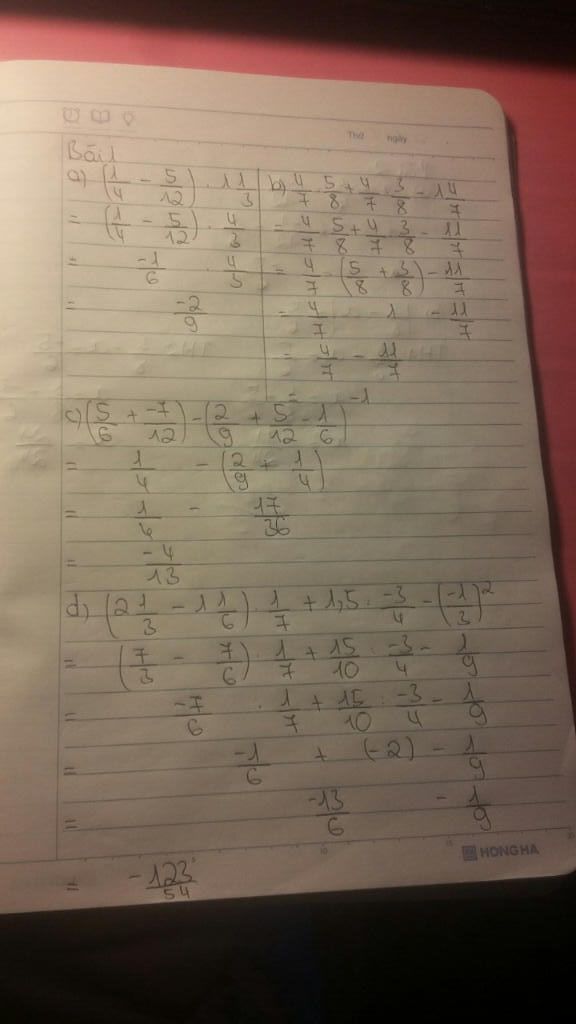 Thứ ngày
Bài 1
a) (1/4 - 5/12) . 1 1/3
= (1/4 - 5/12) . 4/3
= -1/6 . 4/3
= -2/9
b) 4/7 . 5/8 + 4/7 . 3/8 - 1 4/7
= 4/7 . 5/8 + 4/7 . 3/8 - 11/7
= 4/7 . (5/8 + 3/8) - 11/7
= 4/7 . 1 - 11/7
= 4/7 - 11/7
= -1
c) (5/6 + -7/12) - (2/9 + 5/12 - 1/6)
= 1/4 - (2/9 + 1/4)
= 1/4 - 17/36
= -4/13
d) (2 1/3 - 1 1/6) . 1/7 + 1,5 . -3/4 - (-1/3)²
= (7/3 - 7/6) . 1/7 + 15/10 . -3/4 - 1/9
= -7/6 . 1/7 + 15/10 . -3/4 - 1/9
= -1/6 + (-2) - 1/9
= -13/6 - 1/9
HONG HA
= -123/54